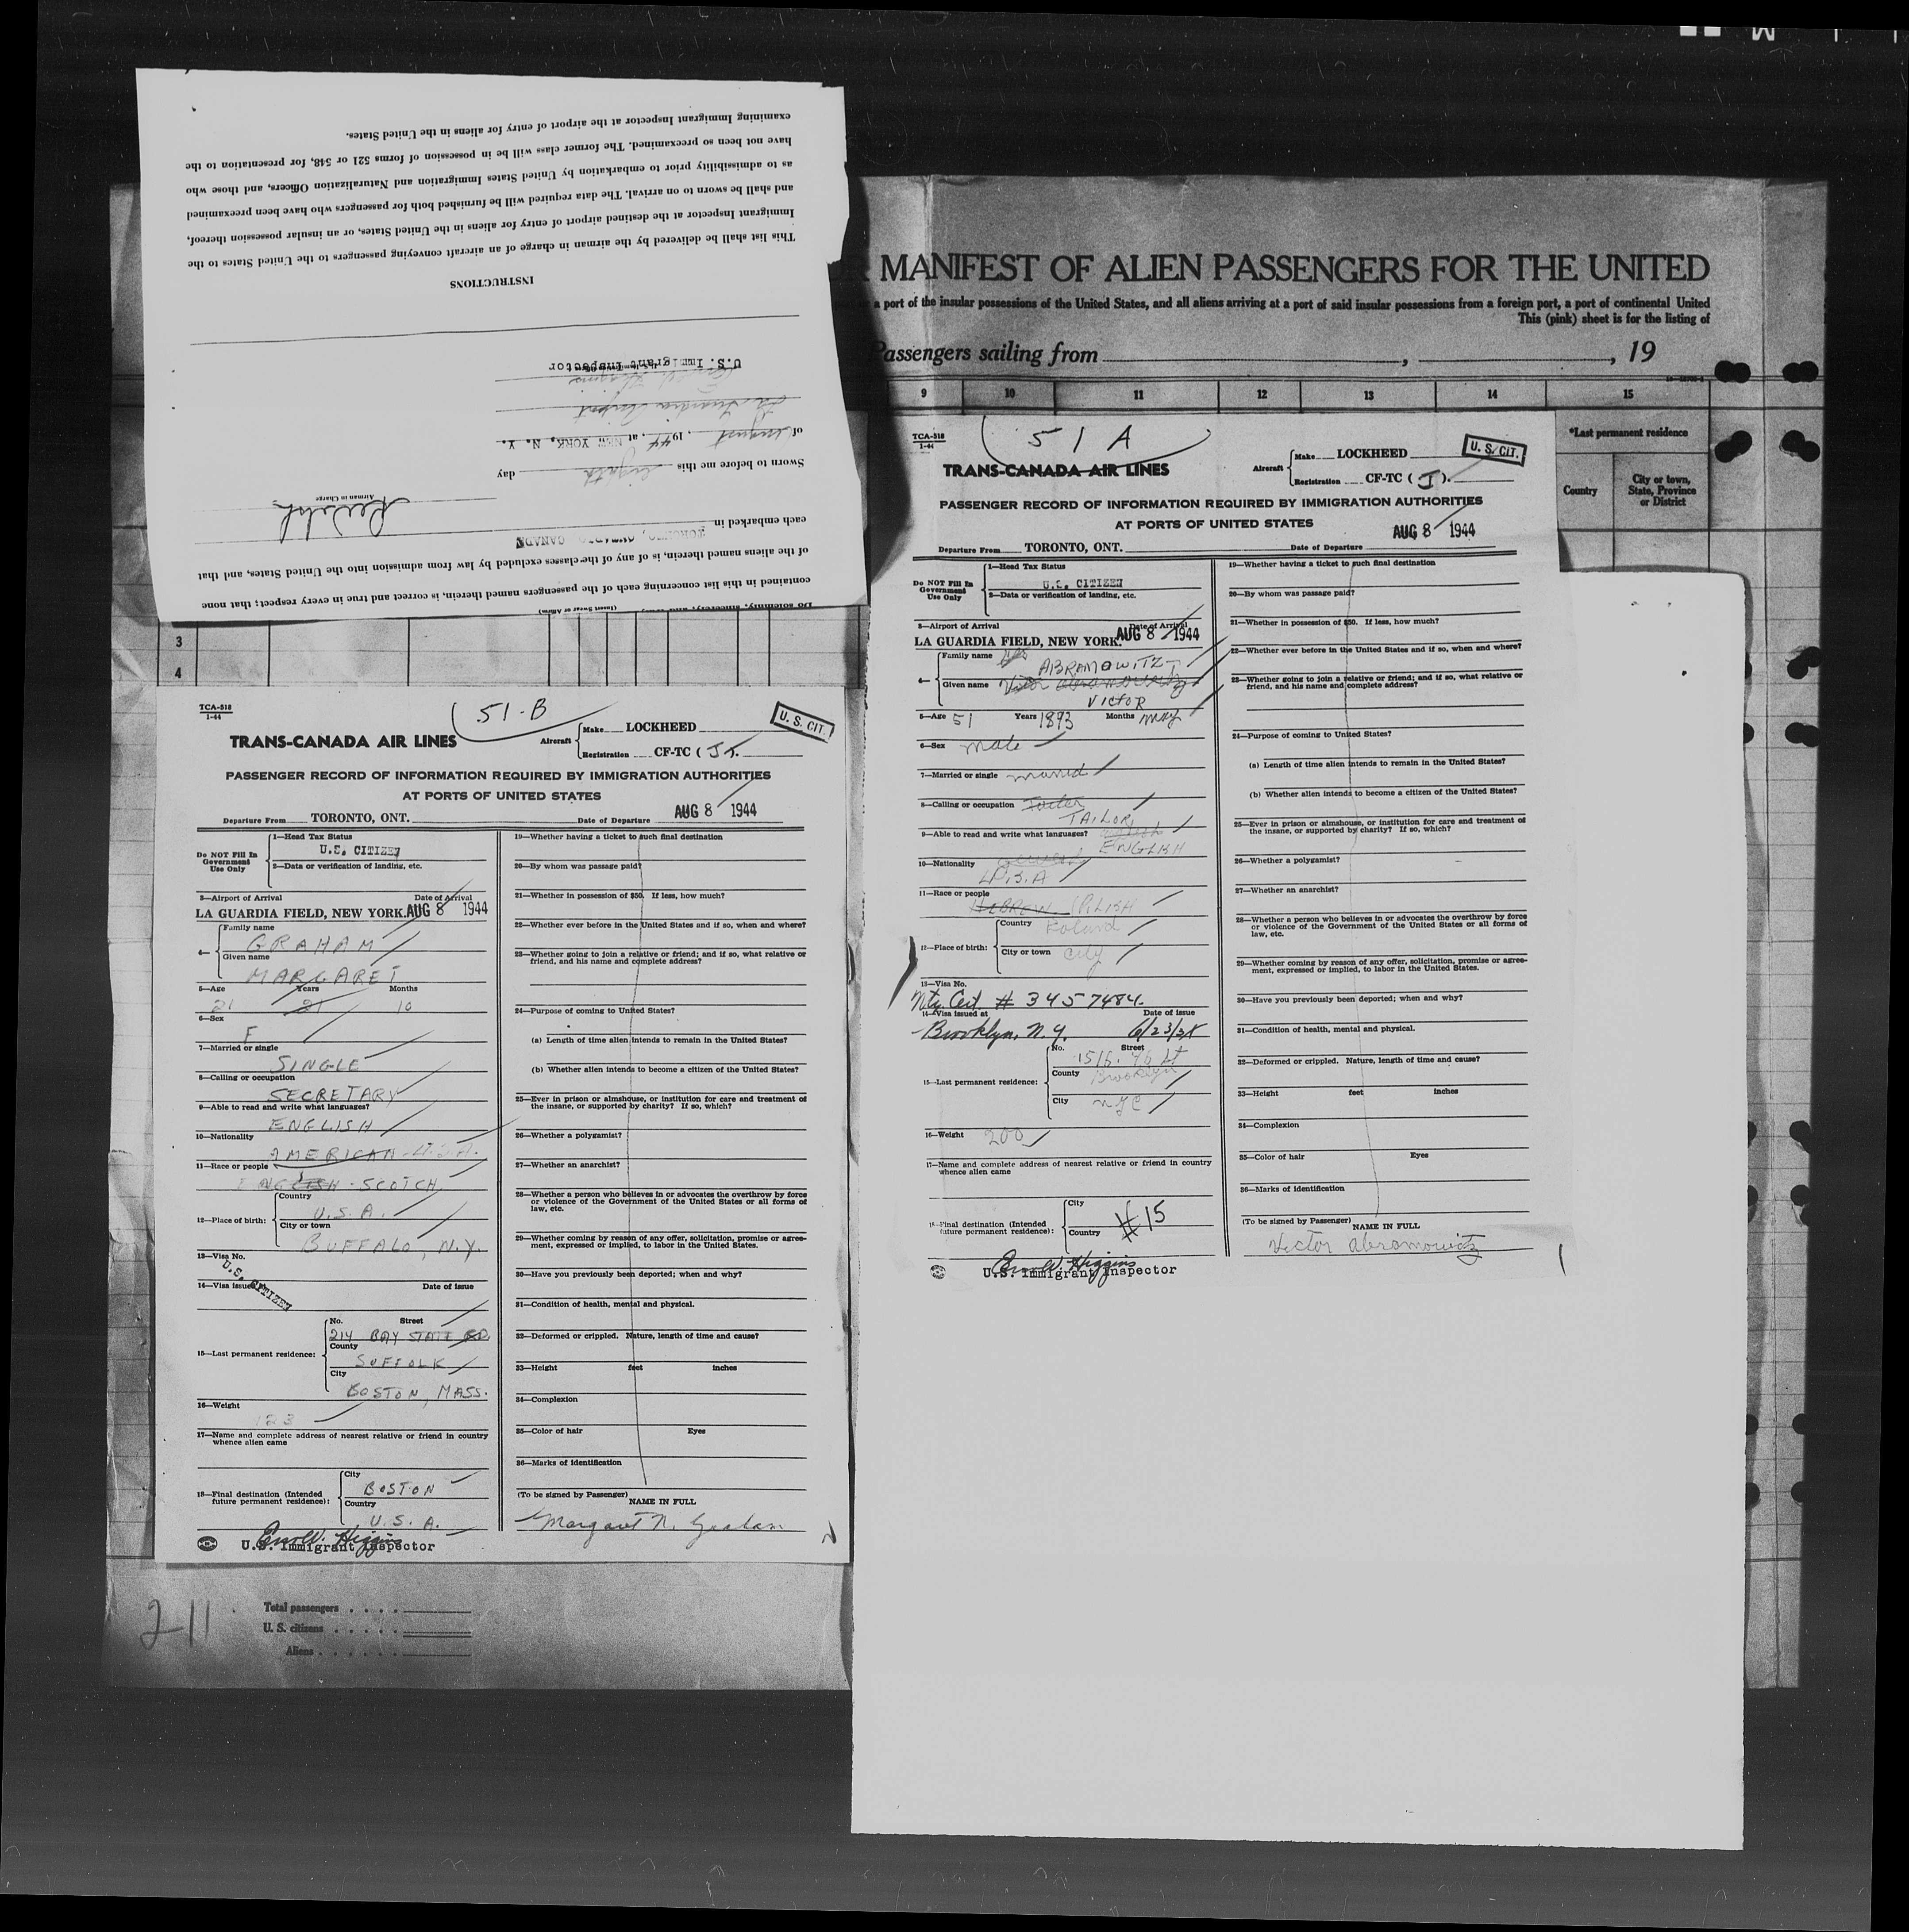 examining Immigrant Inspector at the airport of entry for aliens in the United States.
have not been so preexamined. The former class will be in possession of forms 521 or 548, for presentation to the
as to admissibility prior to embarkation by United States Immigration and Naturalization Officers, and those who
and shall be sworn to on arrival. The data required will be furnished both for passengers who have been preexamined
Immigrant Inspector at the destined airport of entry for aliens in the United States, or an insular possession thereof,
This list shall be delivered by the airman in charge of an aircraft conveying passengers to the United States to the
INSTRUCTIONS
U.S. Immigrant Inspector
La Guardia Airport
of August, 1944, at NEW YORK, N. Y.
Sworn to before me this eighth day
Airman in Charge
each embarked in TORONTO, ONTARIO, CANADA
of the aliens named therein, is of any of the classes excluded by law from admission into the United States, and that
contained in this list concerning each of the passengers named therein, is correct and true in every respect; that none
MANIFEST OF ALIEN PASSENGERS FOR THE UNITED
a port of the insular possessions of the United States, and all aliens arriving at a port of said insular possessions from a foreign port, a port of continental United
This (pink) sheet is for the listing of
Passengers sailing from , , 19
9 10 11 12 13 14 15
*Last permanent residence
Country
City or town, State, Province or District
3
4
TCA-518
1-44
51-B
U. S. CIT.
TRANS-CANADA AIR LINES
Aircraft
Make LOCKHEED
Registration CF-TC (
PASSENGER RECORD OF INFORMATION REQUIRED BY IMMIGRATION AUTHORITIES
AT PORTS OF UNITED STATES
Departure From TORONTO, ONT. Date of Departure AUG 8 1944
Do NOT Fill In Government Use Only
1—Head Tax Status
U.S. CITIZEN
2—Data or verification of landing, etc.
3—Airport of Arrival Date of Arrival
LA GUARDIA FIELD, NEW YORK. AUG 8 1944
4—
Family name
GRAHAM
Given name
MARGARET
5—Age Years Months
21 21 10
6—Sex
F
7—Married or single
SINGLE
8—Calling or occupation
SECRETARY
9—Able to read and write what languages?
ENGLISH
10—Nationality
AMERICAN U.S.A.
11—Race or people
ENGLISH - SCOTCH
12—Place of birth:
Country
U.S.A.
City or town
BUFFALO, N.Y.
13—Visa No.
U.S. CITIZEN
14—Visa issued Date of issue
15—Last permanent residence:
No. Street
214 BAY STATE RD
County
SUFFOLK
City
BOSTON, MASS.
16—Weight
123
17—Name and complete address of nearest relative or friend in country whence alien came
18—Final destination (Intended future permanent residence):
City
BOSTON
Country
U.S.A.
Errol W. Higgins
U.S. Immigrant Inspector
19—Whether having a ticket to such final destination
20—By whom was passage paid?
21—Whether in possession of $50. If less, how much?
22—Whether ever before in the United States and if so, when and where?
23—Whether going to join a relative or friend; and if so, what relative or friend, and his name and complete address?
24—Purpose of coming to United States?
(a) Length of time alien intends to remain in the United States?
(b) Whether alien intends to become a citizen of the United States?
25—Ever in prison or almshouse, or institution for care and treatment of the insane, or supported by charity? If so, which?
26—Whether a polygamist?
27—Whether an anarchist?
28—Whether a person who believes in or advocates the overthrow by force or violence of the Government of the United States or all forms of law, etc.
29—Whether coming by reason of any offer, solicitation, promise or agreement, expressed or implied, to labor in the United States.
30—Have you previously been deported; when and why?
31—Condition of health, mental and physical.
32—Deformed or crippled. Nature, length of time and cause?
33—Height feet inches
34—Complexion
35—Color of hair Eyes
36—Marks of identification
(To be signed by Passenger)
NAME IN FULL
Margaret N. Graham
2-11
Total passengers
U. S. citizens
Aliens
TCA-518
1-44
51 A
U. S. CIT.
TRANS-CANADA AIR LINES
Aircraft
Make LOCKHEED
Registration CF-TC (
PASSENGER RECORD OF INFORMATION REQUIRED BY IMMIGRATION AUTHORITIES
AT PORTS OF UNITED STATES
Departure From TORONTO, ONT. Date of Departure AUG 8 1944
Do NOT Fill In Government Use Only
1—Head Tax Status
U.S. CITIZEN
2—Data or verification of landing, etc.
3—Airport of Arrival Date of Arrival
LA GUARDIA FIELD, NEW YORK. AUG 8 1944
4—
Family name
ABRAMOWITZ
Given name
VICTOR
5—Age 51 Years 1893 Months May
6—Sex Male
7—Married or single married
8—Calling or occupation
TAILOR
9—Able to read and write what languages?
ENGLISH
10—Nationality
U.S.A
11—Race or people
HEBREW POLISH
12—Place of birth:
Country Poland
City or town City
13—Visa No.
Ntz. Cert # 3457484.
14—Visa issued at Date of issue
Brooklyn, N.Y.
15—Last permanent residence:
No. Street
County Brooklyn
City NYC
16—Weight 200
17—Name and complete address of nearest relative or friend in country whence alien came
18—Final destination (Intended future permanent residence):
City
Country
#15
Errol W. Higgins
U.S. Immigrant Inspector
19—Whether having a ticket to such final destination
20—By whom was passage paid?
21—Whether in possession of $50. If less, how much?
22—Whether ever before in the United States and if so, when and where?
23—Whether going to join a relative or friend; and if so, what relative or friend, and his name and complete address?
24—Purpose of coming to United States?
(a) Length of time alien intends to remain in the United States?
(b) Whether alien intends to become a citizen of the United States?
25—Ever in prison or almshouse, or institution for care and treatment of the insane, or supported by charity? If so, which?
26—Whether a polygamist?
27—Whether an anarchist?
28—Whether a person who believes in or advocates the overthrow by force or violence of the Government of the United States or all forms of law, etc.
29—Whether coming by reason of any offer, solicitation, promise or agreement, expressed or implied, to labor in the United States.
30—Have you previously been deported; when and why?
31—Condition of health, mental and physical.
32—Deformed or crippled. Nature, length of time and cause?
33—Height feet inches
34—Complexion
35—Color of hair Eyes
36—Marks of identification
(To be signed by Passenger)
NAME IN FULL
Victor Abramowitz